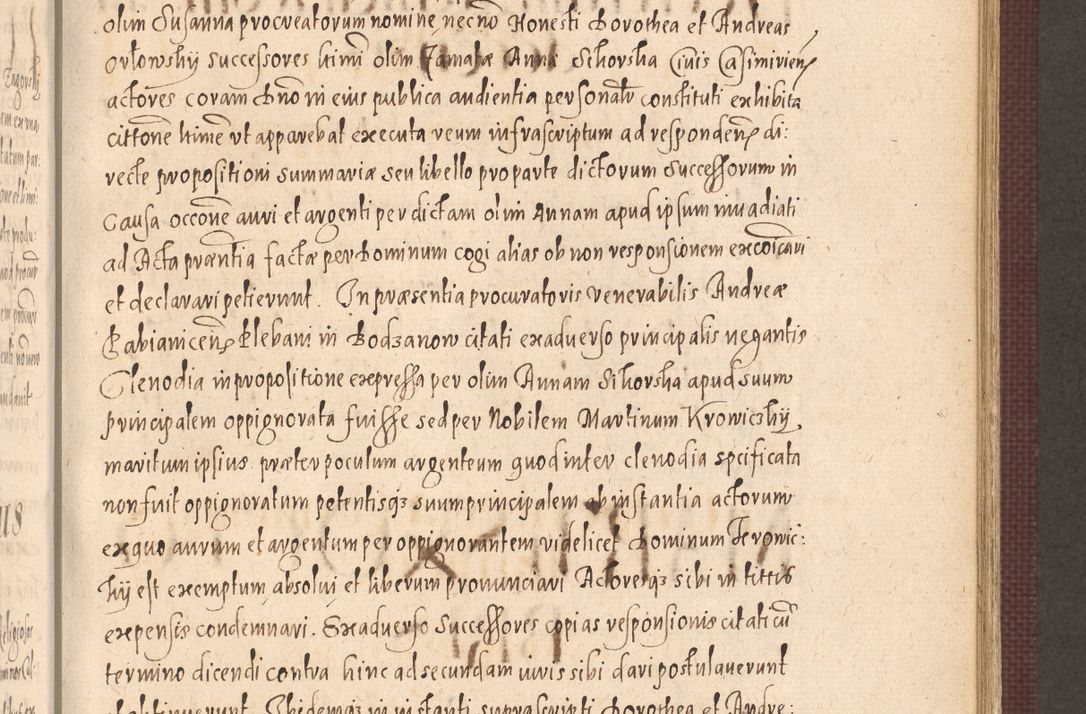 olim Susanna procreatorum nomine necnō Honesti Dorothea et Andreas
Orłowskij Successores himī olim Famatæ Annæ Sikorska Ciuis Casimirien
actores coram Dno in eius publica audientia personalr constituti exhibita
cittone himē vt apparebat executa reum infrascriptum ad responden di:
recte propositioni summariæ seu libello pro parte dictorum Successorum in
Causa occone auri et argenti per dictam olim Annam apud ipsum inuadiati
ad Acta præntia factæ per Dominum cogi alias ob non responsionem excoicari
et declarari petierunt. In præsentia procuratoris Venerabilis Andreæ
Pabianicen Plebani in Bodzanow citati ex aduerso principalis negantis
Clenodia in propositione expressa per olim Annam Sikorska apud suum
principalem oppignorata fuisse sed per Nobilem Martinum Krowiczkij,
maritum ipsius præter poculum argenteum quod inter clenodia spcificata
non fuit oppignoratum petentisqz suum principalem ab instantia actorum
ex quo aurum et argentum per oppignorantem videlicet Dominum Kronic:
kij est exemptum absolui et liberum pronunciari Actoresqz sibi in littis
expensis condemnari. Ex aduerso Successores copias responsionis citati cū
termino dicendi contra hinc ad secundam iuris sibi dari postulauerunt
et obtinuerunt. Ibidemqz in instanti suprascripti Dorothea et Andre: